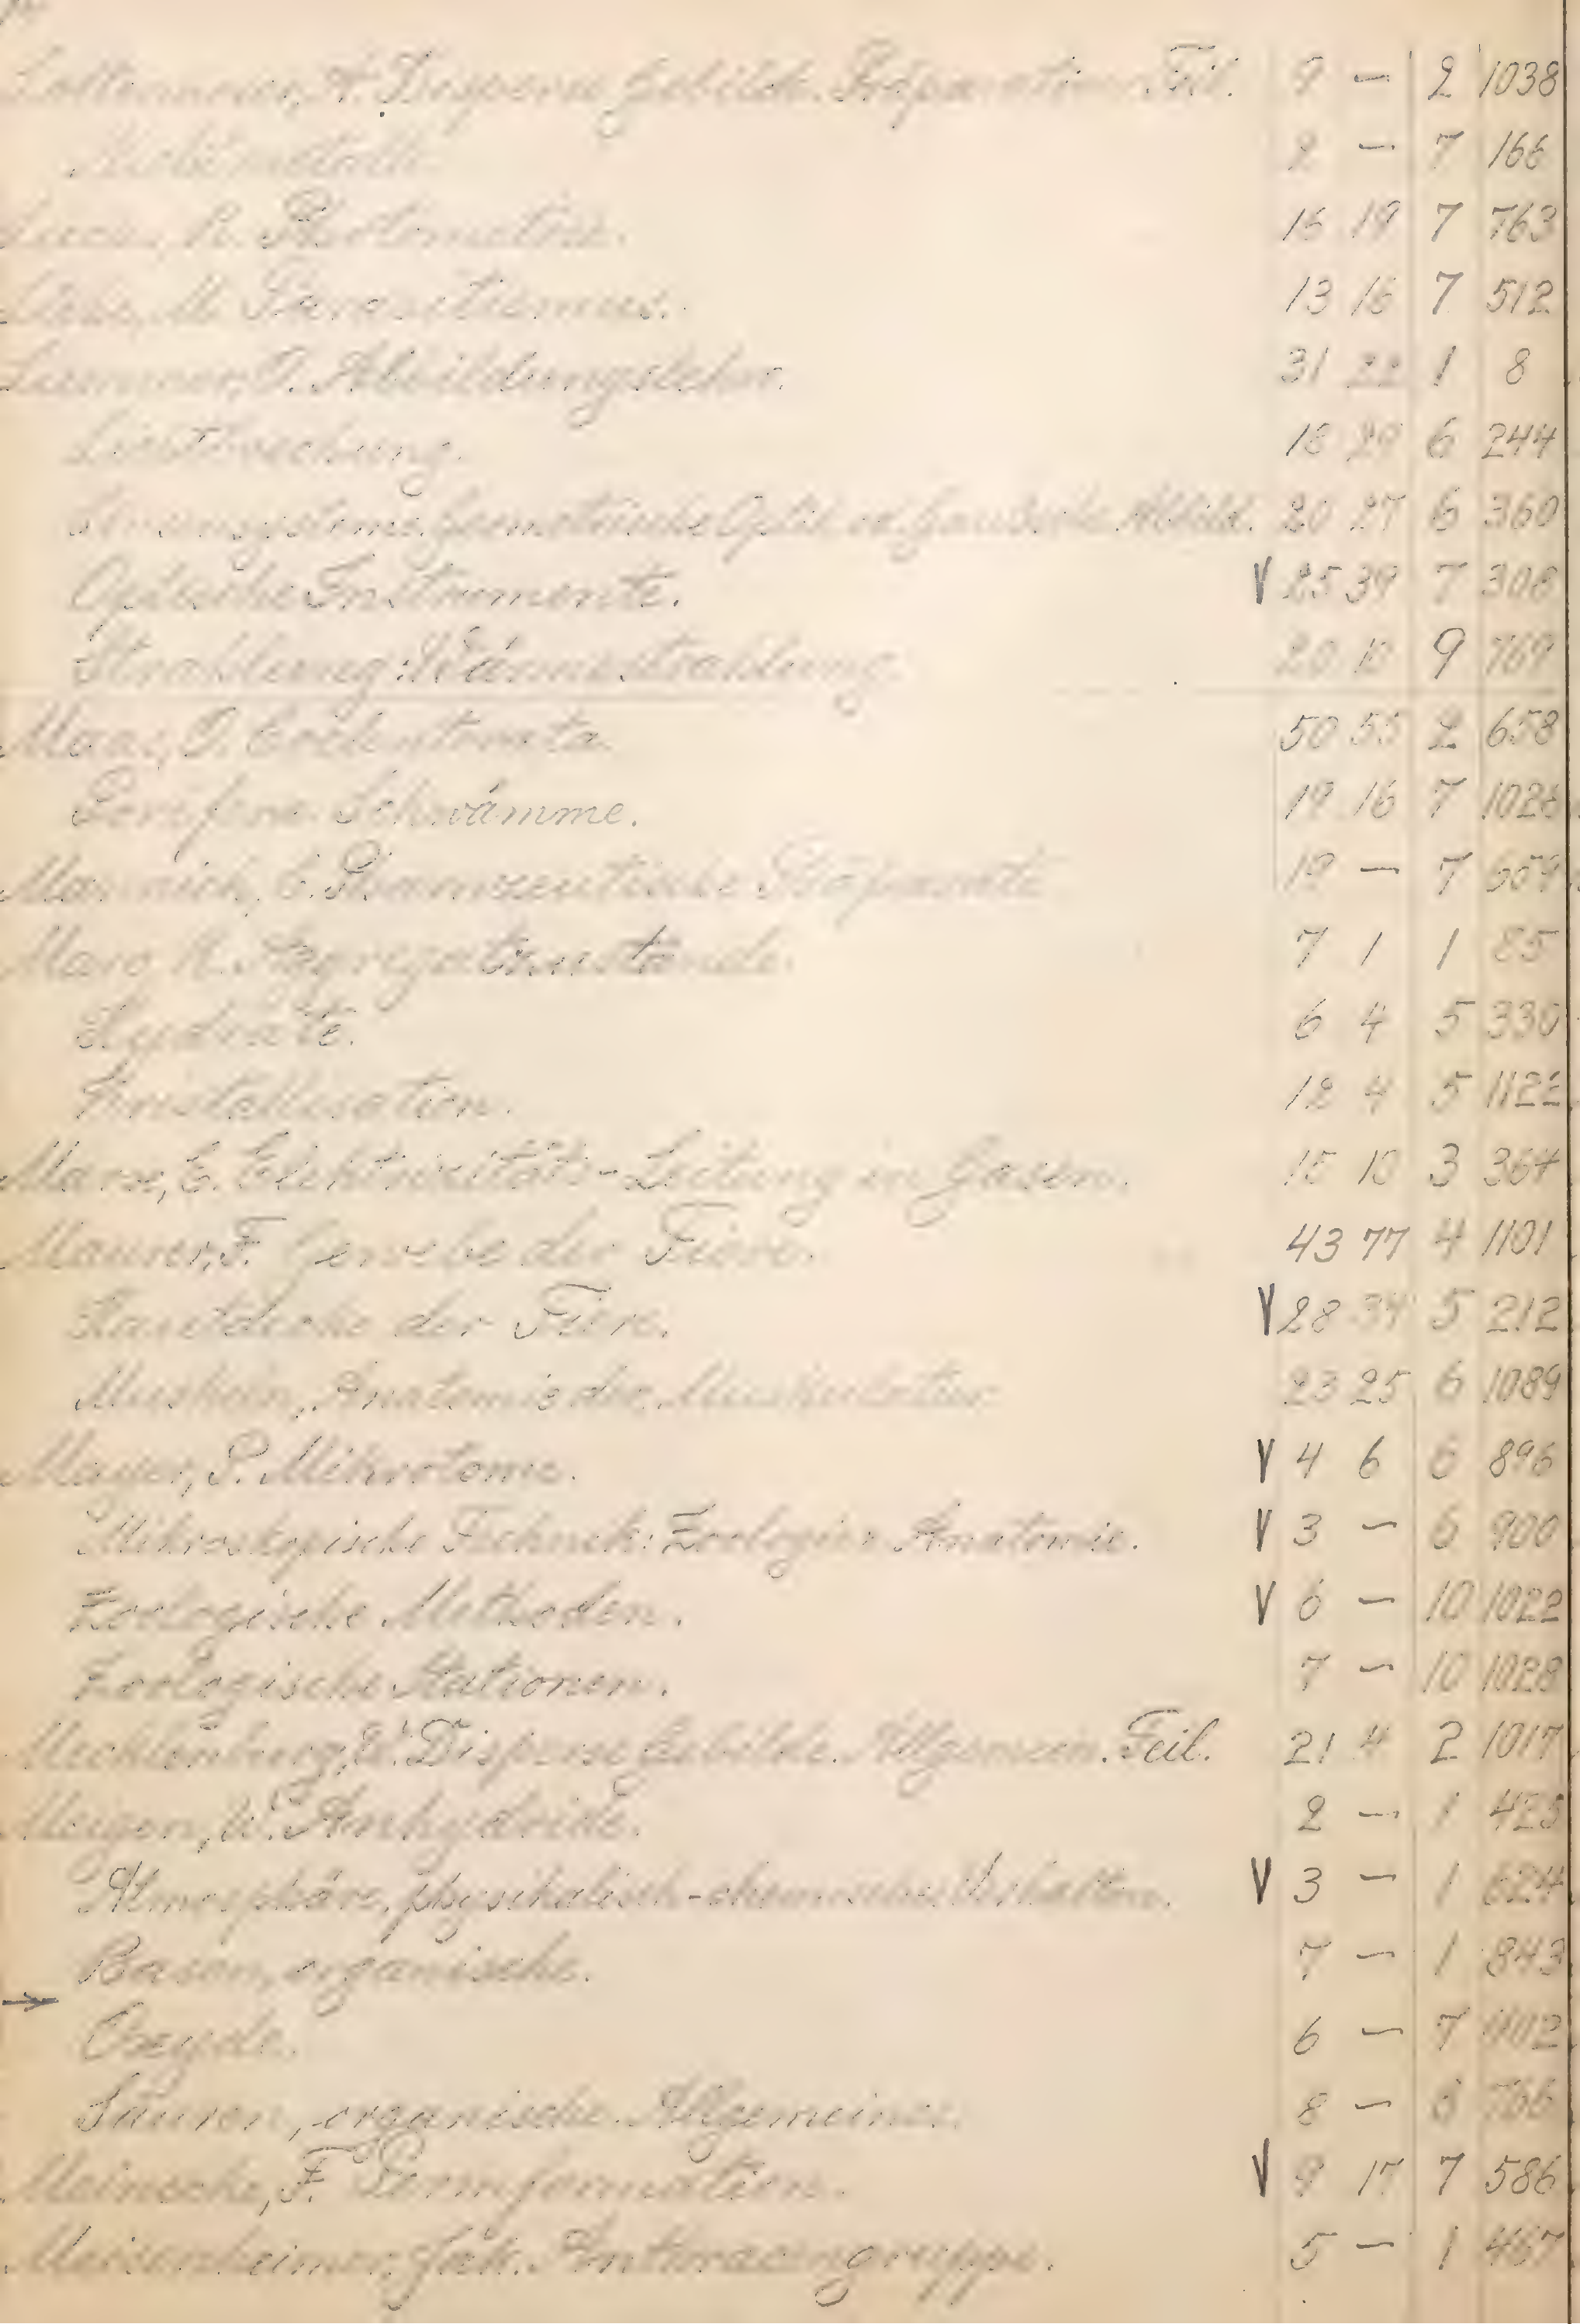 Lottermoser, A. Disperse Gebilde. Präparativer Teil. 9 — 2 1038
Nichtmetalle. 2 — 7 166
Lucas, R. Photometrie. 15 19 7 763
Lühe, M. Parasitismus. 13 16 7 512
Lummer, O. Abbildungslehre. 31 22 1 8
Lichtbrechung. 18 29 6 244
Linsensysteme, geometrische Optik od. Gaußsche Abbild. 20 27 6 360
Optische Instrumente. V 25 39 7 308
Strahlung: Wärmestrahlung. 20 10 9 769
Maas, O. Coelenterata. 50 55 2 658
Porifera Schwämme. 19 16 7 1026
Mannich, C. Pharmazeutische Präparate. 19 — 7 659
Marc, R. Aggregatzustände. 7 1 1 85
Hydrate. 6 4 5 330
Kristallisation. 12 4 5 1122
Marx, E. Elektrizitäts-Leitung in Gasen. 15 10 3 364
Maurer, F. Gewebe der Tiere. 43 77 4 1101
Hautdecke der Tiere. V 28 34 5 212
Muskeln, Anatomie der Muskulatur. 23 25 6 1089
Mayer, P. Mikrotome. V 4 6 6 896
Mikroskopische Technik: Zoologie u. Anatomie. V 3 — 6 900
Zoologische Methoden. V 6 — 10 1022
Zoologische Stationen. 7 — 10 1028
Mecklenburg, W. Disperse Gebilde. Allgemein. Teil. 21 4 2 1017
Meigen, W. Anhydride. 2 — 1 425
Atmosphäre, physikalisch-chemisches Verhalten. V 3 — 1 624
Basen, organische. 7 — 1 843
→
Oxyde. 6 — 7 402
Säuren, organische. Allgemeines. 8 — 8 766
Meinecke, F. Permformation. V 9 17 7 586
Meisenheimer, Jak. Anthracengruppe. 5 — 1 467